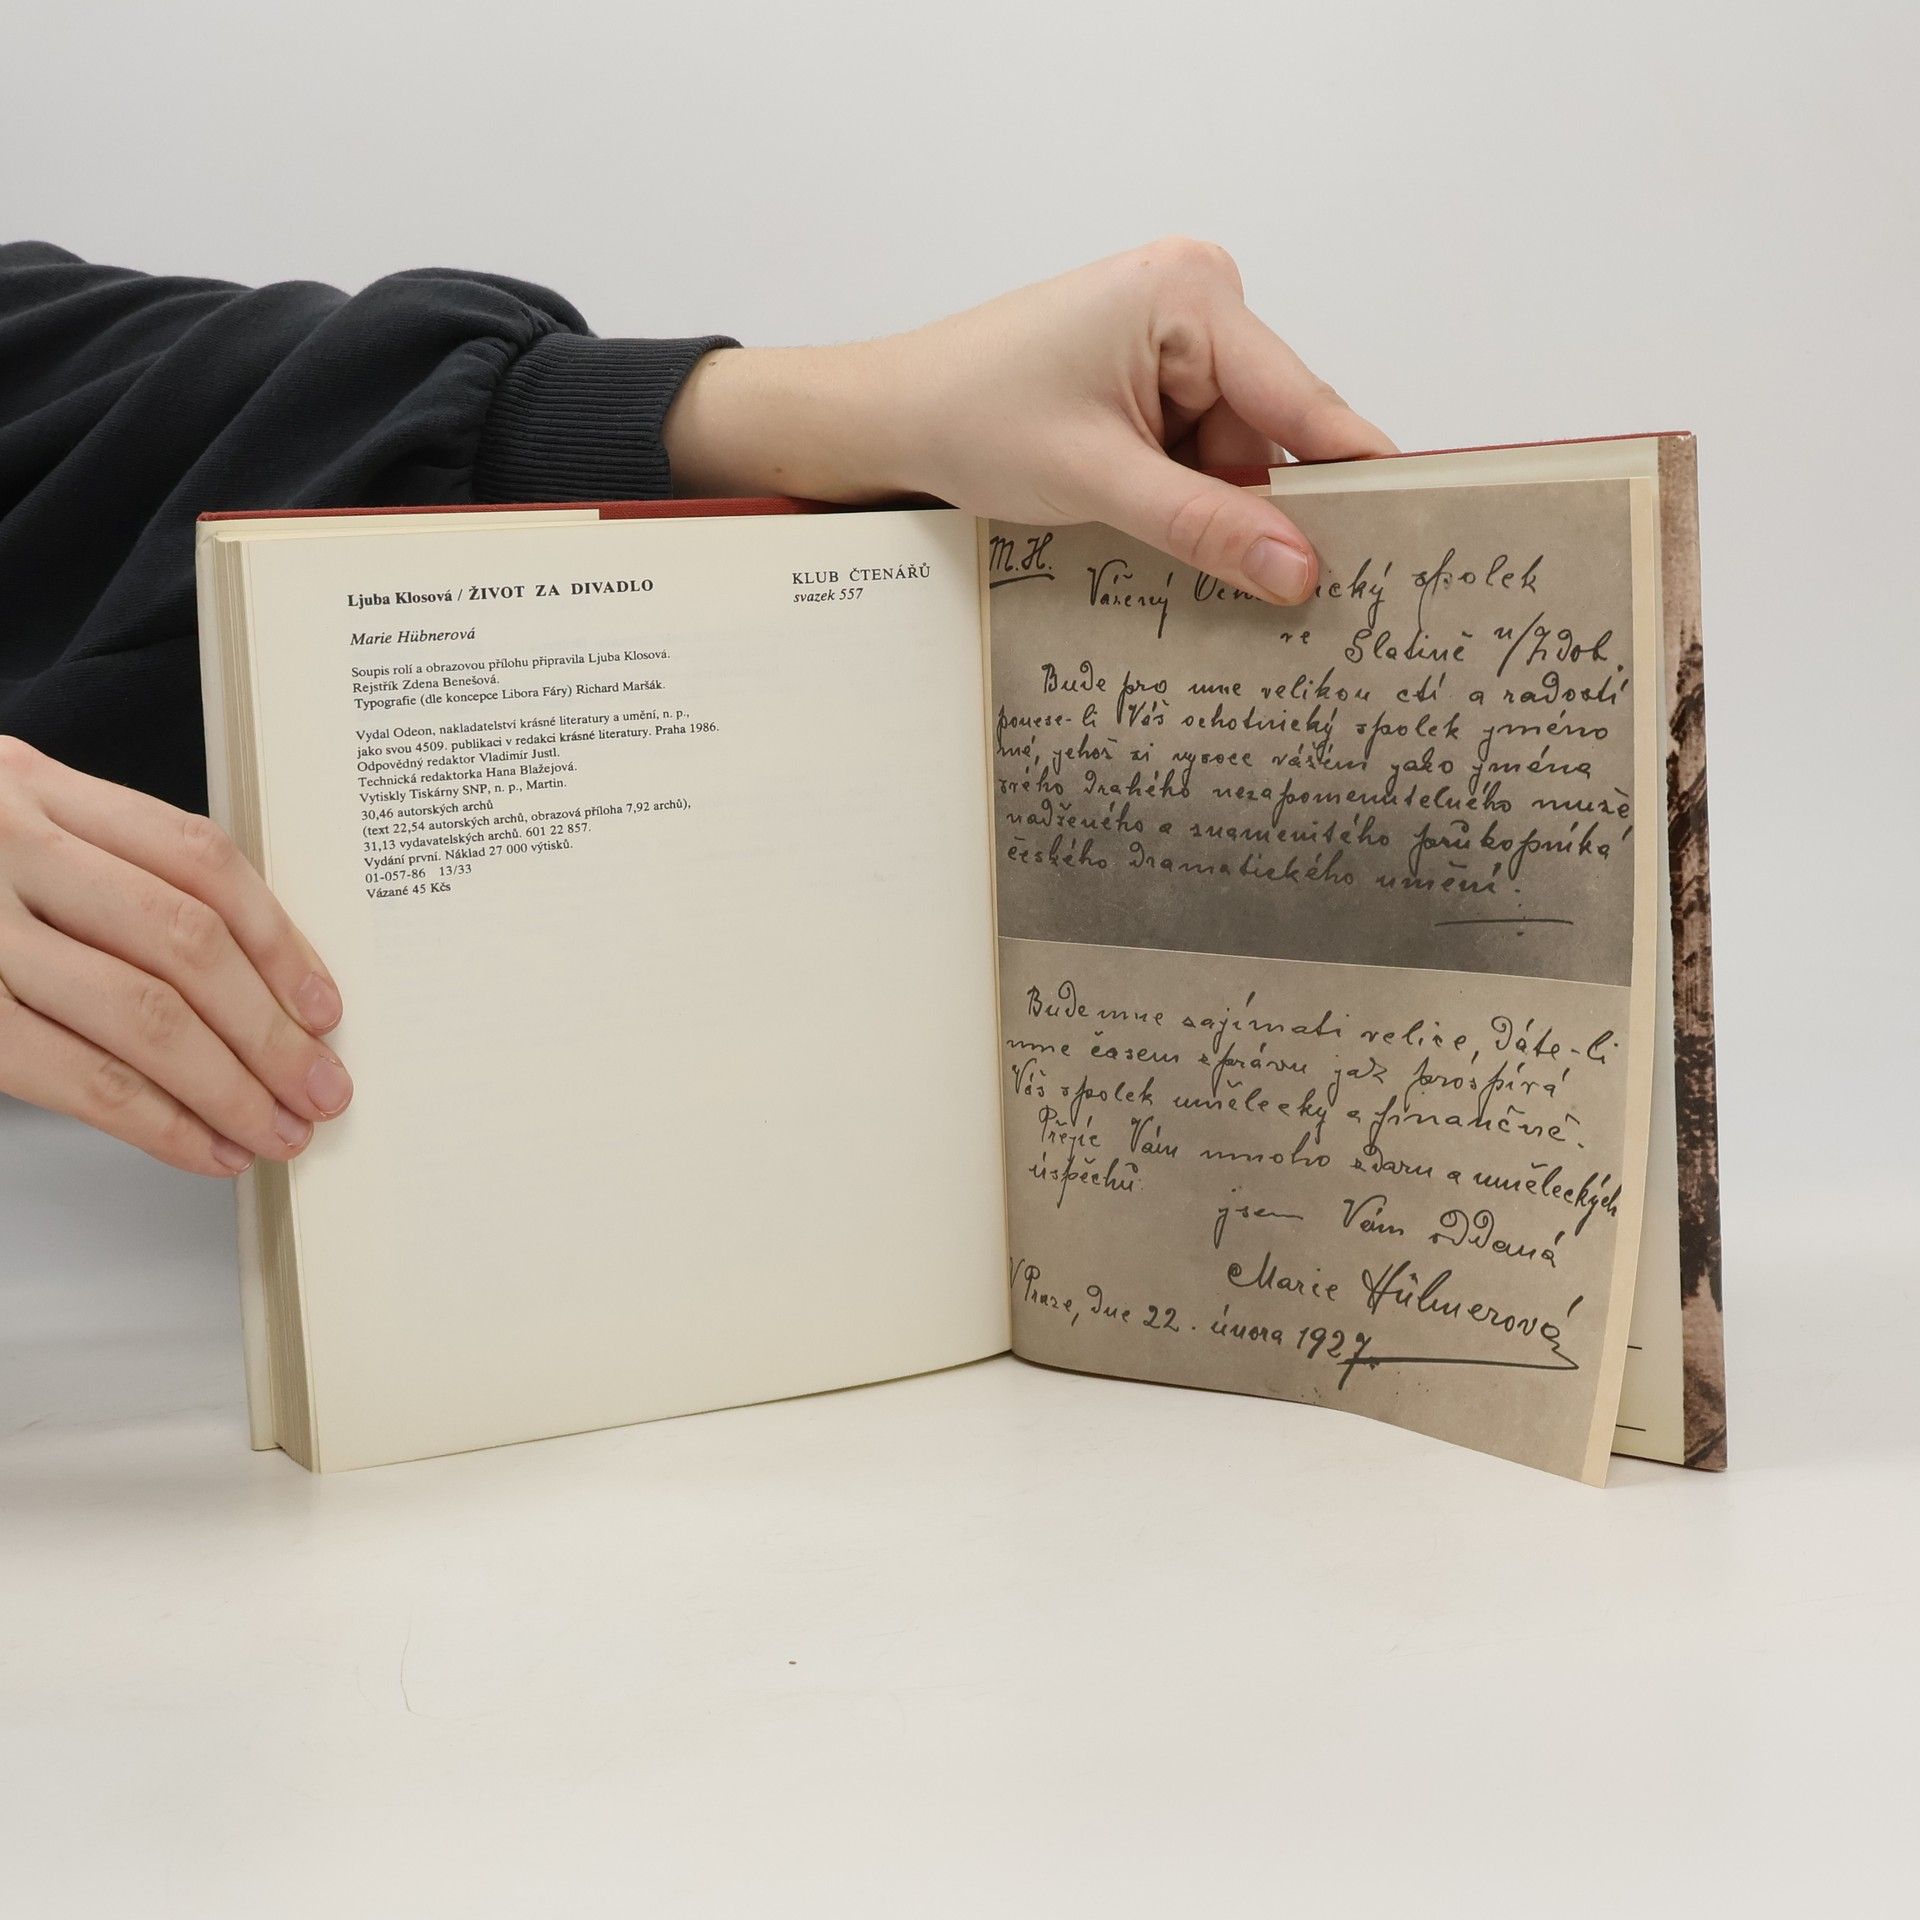 Ljuba Klosová / ŽIVOT ZA DIVADLO
KLUB ČTENÁŘŮ
svazek 557
Marie Hübnerová
Soupis rolí a obrazovou přílohu připravila Ljuba Klosová.
Rejstřík Zdena Benešová.
Typografie (dle koncepce Libora Fáry) Richard Maršák.
Vydal Odeon, nakladatelství krásné literatury a umění, n. p.,
jako svou 4509. publikaci v redakci krásné literatury. Praha 1986.
Odpovědný redaktor Vladimír Justl.
Technická redaktorka Hana Blažejová.
Vytiskly Tiskárny SNP, n. p., Martin.
30,46 autorských archů
(text 22,54 autorských archů, obrazová příloha 7,92 archů),
31,13 vydavatelských archů. 601 22 857.
Vydání první. Náklad 27 000 výtisků.
01-057-86 13/33
Vázané 45 Kčs
M. H.
Vážený spolek
ve Slatině n/Zdob.
Bude pro mne velikou ctí a radostí
ponese-li Váš ochotnický spolek jméno
mé, jehož si vysoce vážím jako jména
svého drahého nezapomenutelného muže
nadšeného a znamenitého průkopníka
českého dramatického umění.
Bude mne zajímati velice, dáte-li
mne časem zprávu jak prospívá
Váš spolek umělecky a finančně.
Přejíc Vám mnoho zdaru a uměleckých
úspěchů
jsem Vám oddaná
Marie Hübnerová
V Praze, dne 22. února 1927.